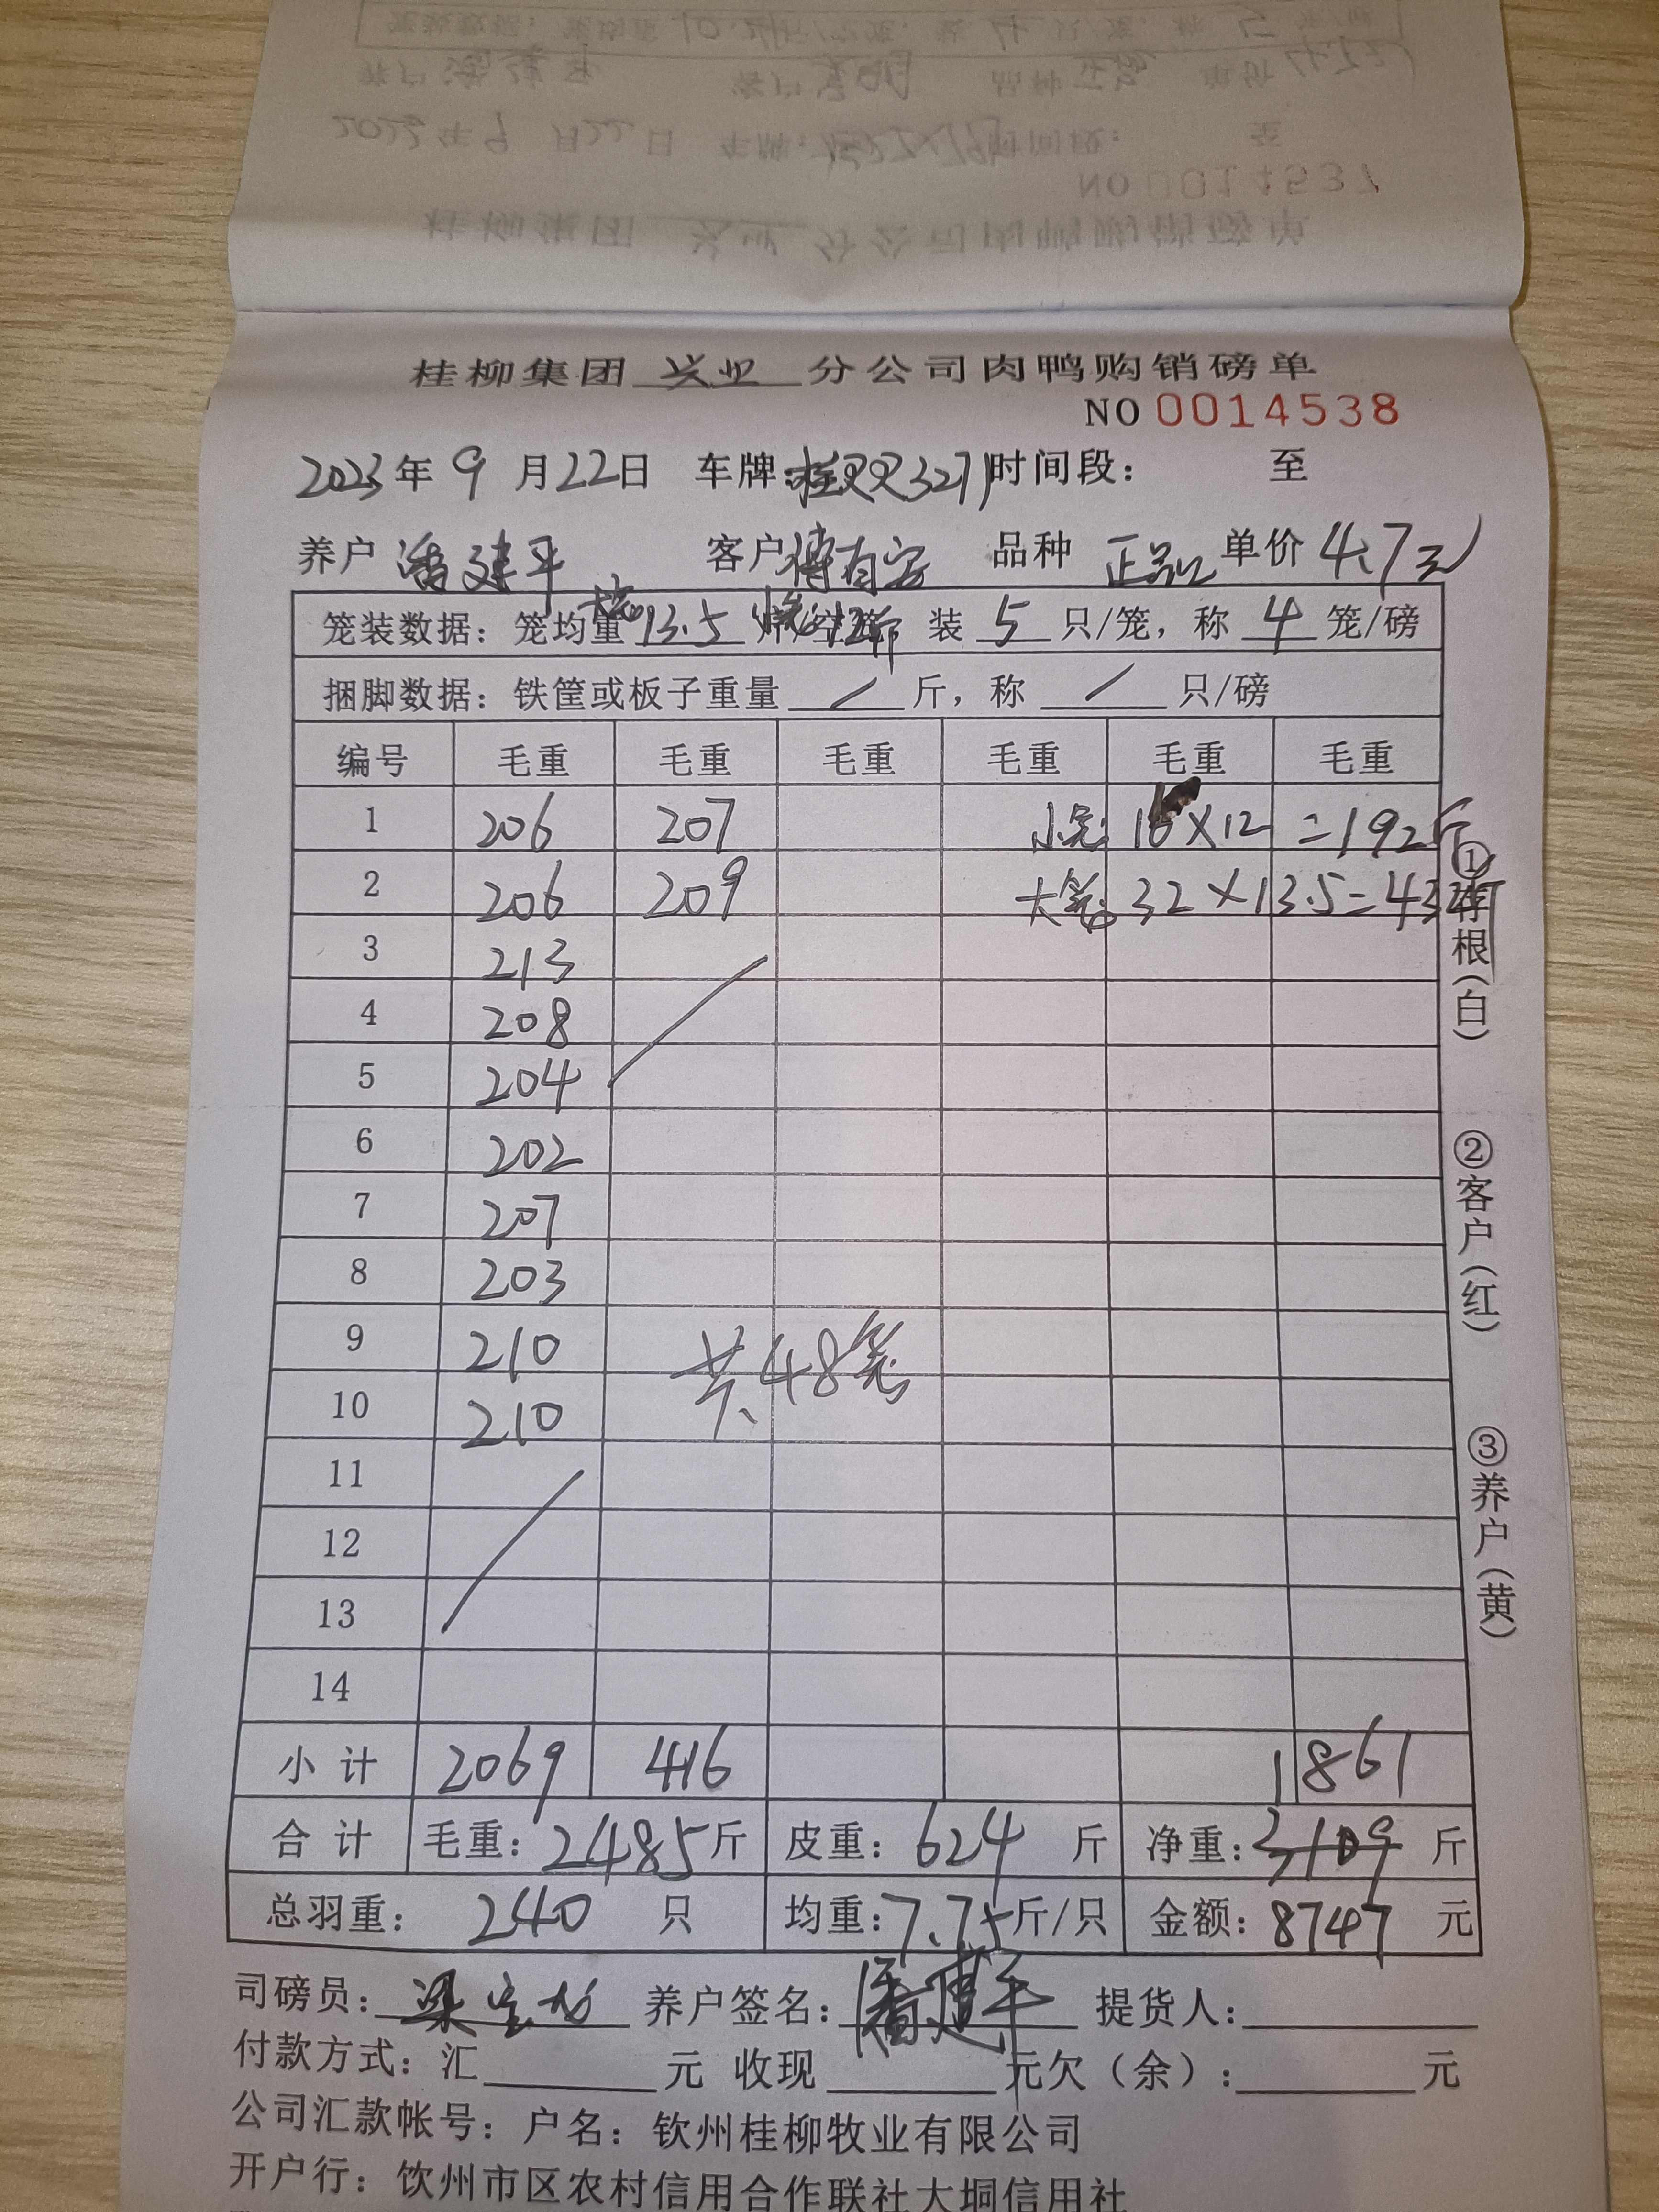 桂柳集团 兴业 分公司肉鸭购销磅单
NO 0014538
2023年 9 月22日 车牌:桂 3271 时间段: 至
养户 潘建平 客户 傅有安 品种 正品 单价 4.7元
笼装数据: 笼均重 大笼13.5 小笼12斤 装 5 只/笼, 称 4 笼/磅
捆脚数据: 铁筐或板子重量 / 斤, 称 / 只/磅
编号 毛重 毛重 毛重 毛重 毛重 毛重
1 206 207 小笼 16×12 =192斤
2 206 209 大笼 32×13.5=432斤
3 213
4 208
5 204
6 202
7 207
8 203
9 210 共48笼
10 210
11
12
13
14
小计 2069 416 1861
合计 毛重: 2485斤 皮重: 624 斤 净重: 3109 斤
总羽重: 240 只 均重: 7.75斤/只 金额: 8747 元
司磅员: 梁 养户签名: 潘建平 提货人:
付款方式: 汇 元 收现 元欠(余): 元
公司汇款帐号: 户名: 钦州桂柳牧业有限公司
开户行: 饮州市区农村信用合作联社大垌信用社
①存根(白)
②客户(红)
③养户(黄)